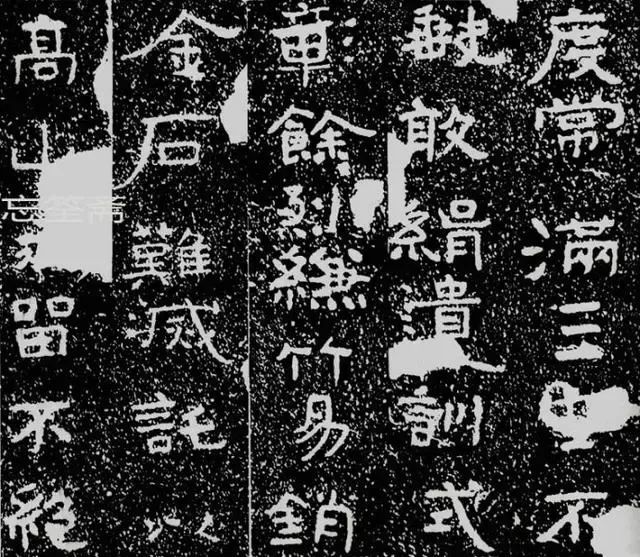 度常滿三不
敢緝遺訓式
彰餘烈縑竹易銷
金石難滅託以
高山永留不絕
忘筌斋